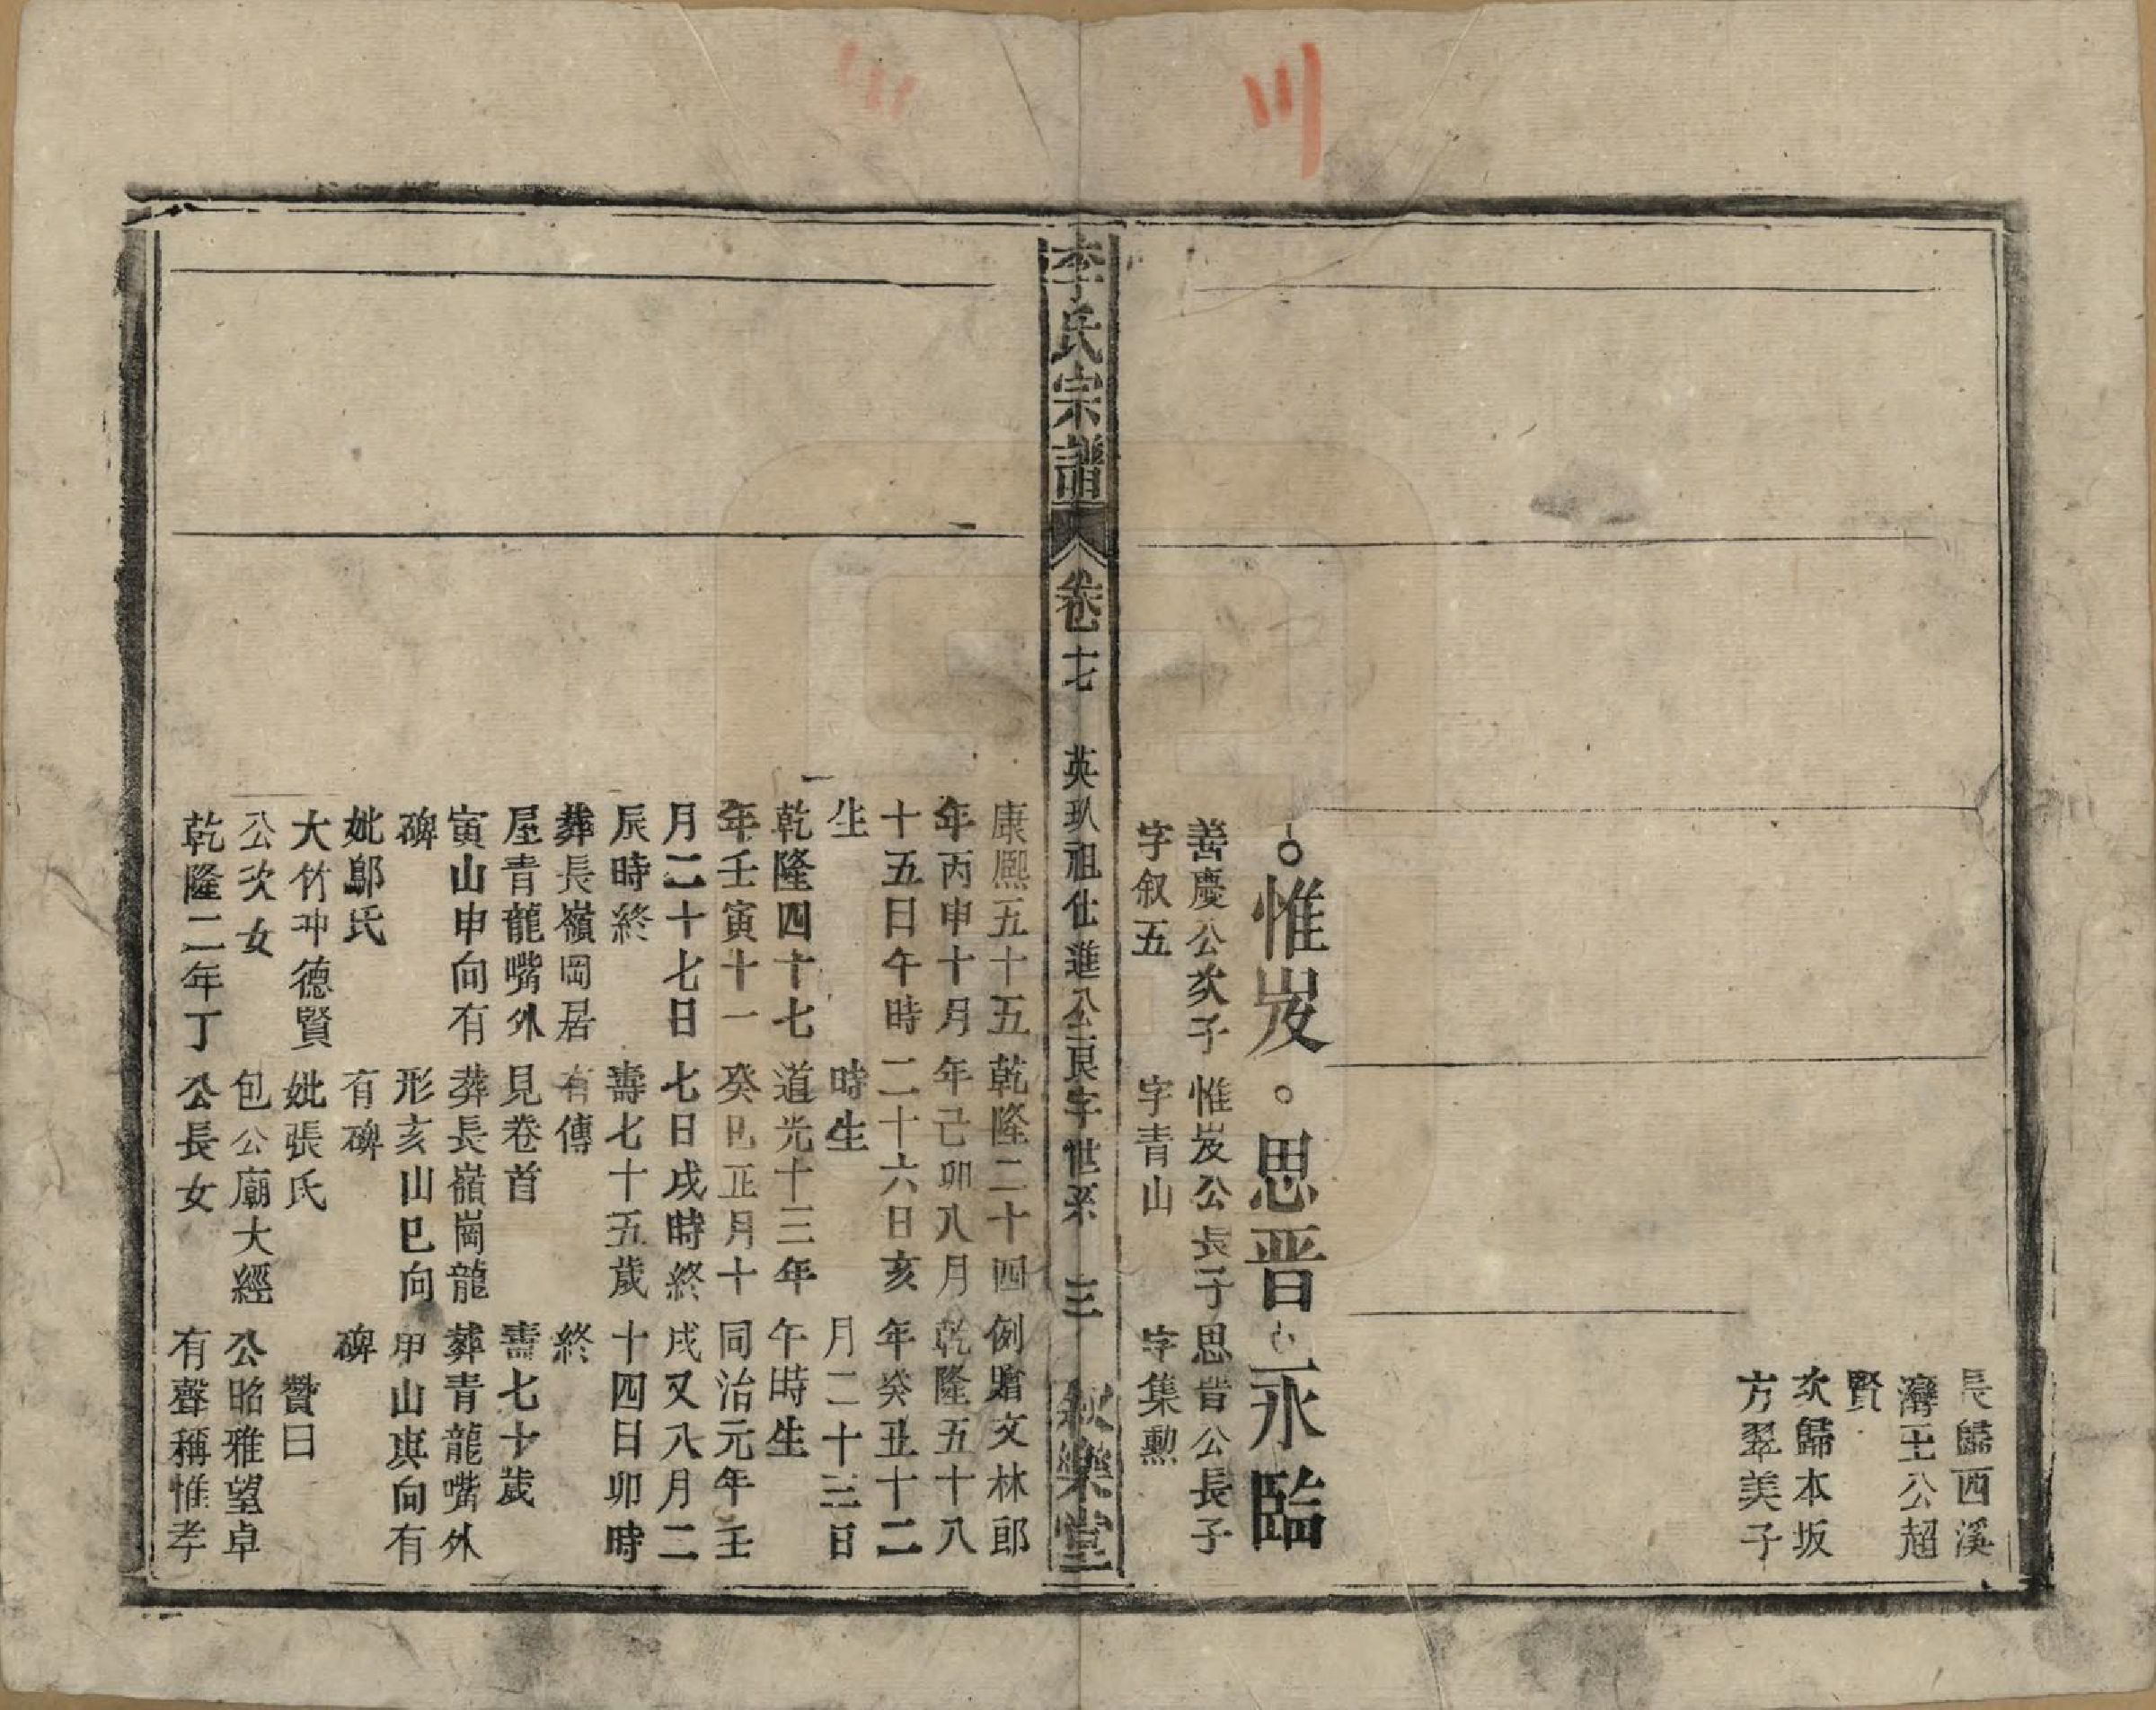 長歸西溪
灣王公超
賢
次歸本坂
方翠美子
惟岌
善慶公次子
字叙五
康熙五十五
年丙申十月
十五日午時
生
乾隆四十七
年壬寅十一
月二十七日
辰時終
葬長嶺岡居
屋青龍嘴外
寅山申向有
碑
妣鄔氏
大竹冲德賢
公次女
乾隆二年丁
思晋
惟岌公長子
字青山
乾隆二十四
年己卯八月
二十六日亥
時生
道光十三年
癸巳正月十
七日戌時終
壽七十五歲
有傳
見卷首
葬長嶺崗龍
形亥山巳向
有碑
妣張氏
包公廟大經
公長女
永臨
思晋公長子
字集勲
例贈文林郎
乾隆五十八
年癸丑十二
月二十三日
午時生
同治元年壬
戌又八月二
十四日卯時
終
壽七十歲
葬青龍嘴外
甲山庚向有
碑
贊曰
公昭雅望卓
有聲稱惟孝
李氏宗譜
卷十七
英玖祖仕進公良字世系
三
叙樂堂
川